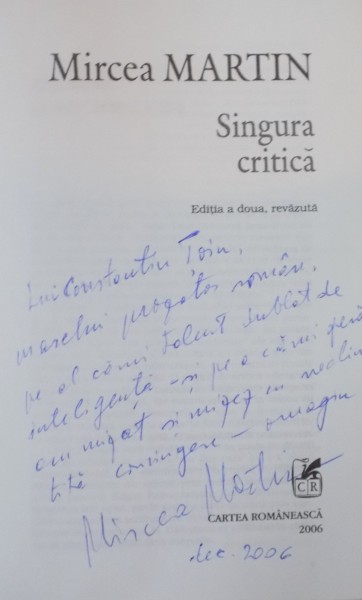 Mircea MARTIN
Singura
critică
Ediția a doua, revăzută
Lui Constantin Țoiu,
marelui prozator român,
pe al cărui talent dublat de
inteligență – și pe a cărui
am mizat și mizez cu
convingere – omagiu
Mircea Martin
CR
CARTEA ROMÂNEASCĂ
2006
dec. 2006